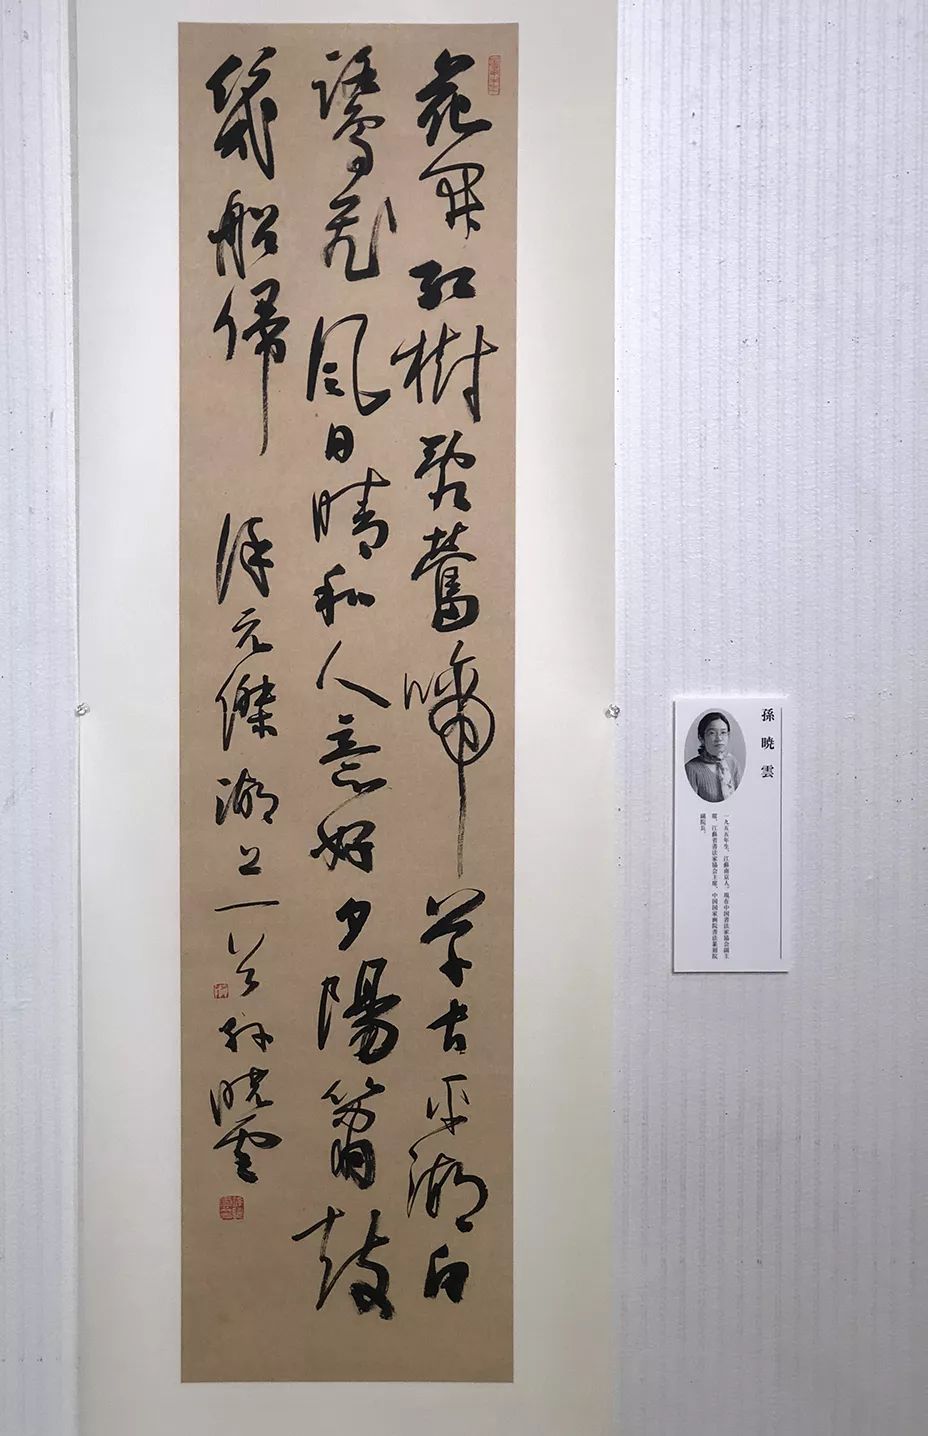 花開紅樹亂鶯啼草長平湖白
鷺飛風日晴和人意好夕陽簫鼓
幾船歸 徐元傑湖上一首 孫曉雲
孫暁雲
一九五五年生、江蘇南京人。現在中国書法家協会副主
席、江蘇省書法家協会主席、中国国家画院書法篆刻院
副院長。